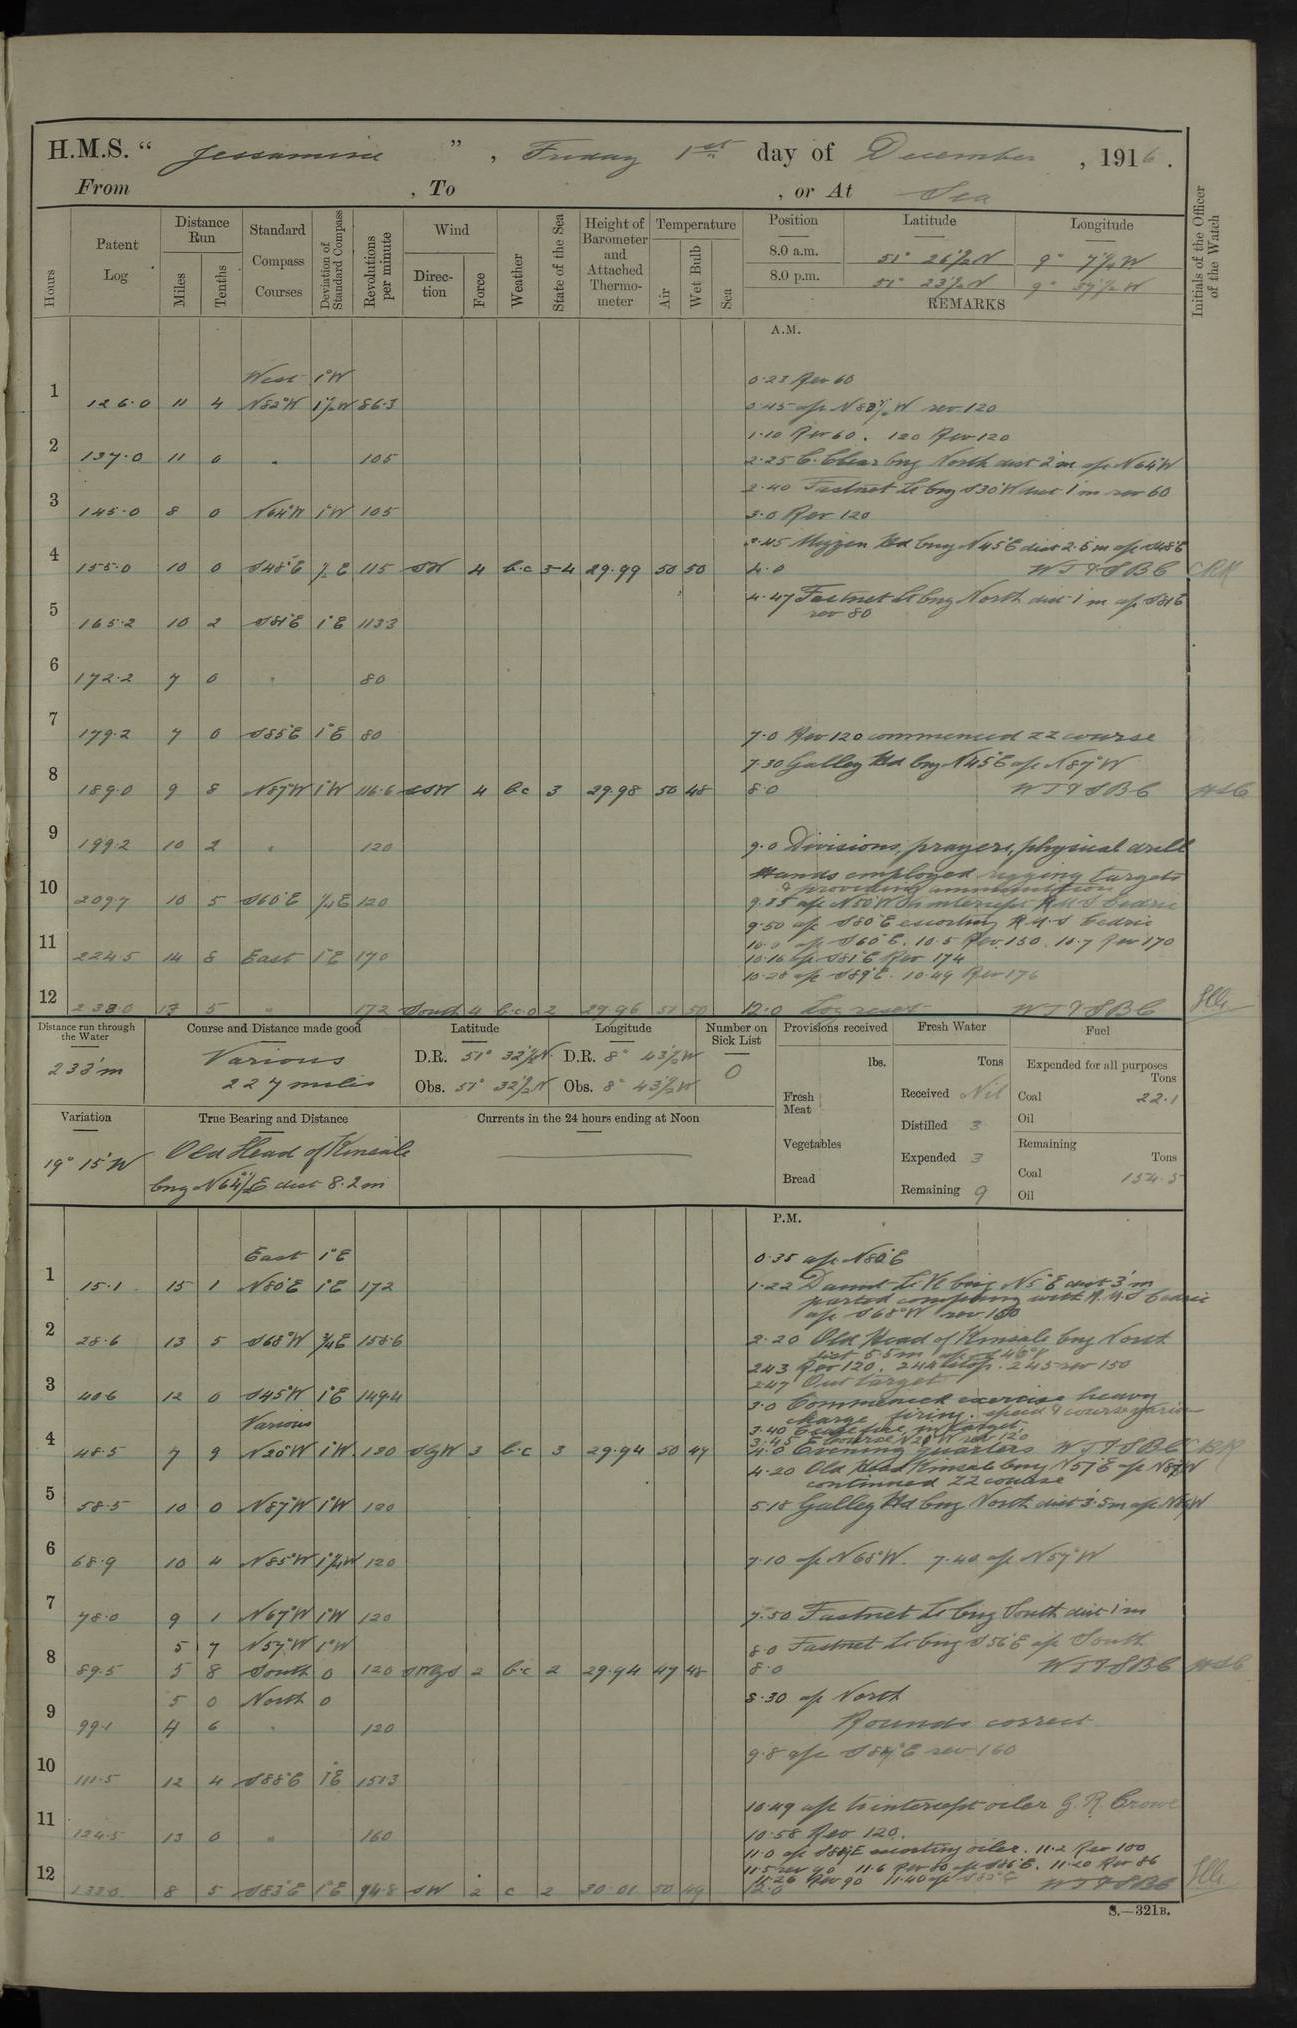 H.M.S. “ Jessamine ” , Friday 1st day of December , 1916 .
From , To , or At Sea
Hours
Patent Log
Distance Run
Miles
Tenths
Standard Compass Courses
Deviation of Standard Compass
Revolutions per minute
Wind
Direc-tion
Force
Weather
State of the Sea
Height of Barometer and Attached Thermo-meter
Temperature
Air
Wet Bulb
Sea
Position Latitude Longitude
8.0 a.m. 51° 26½ N 9° 7¼ W
8.0 p.m. 51° 23½ N 9° 37½ W
REMARKS
Initials of the Officer of the Watch
A.M.
West 1°W 0.23 Rev 60
1 126.0 11 4 N82°W 1½W 86.3 0.45 a/c W rev 120
1.10 Rev 60. 120 Rev 120
2 137.0 11 0 " 105 2.25 C. Clear brg North dist 2'm a/c N64°W
2.40 Fastnet Lt brg S30°W dist 1'm rev 60
3 145.0 8 0 N64°W 1°W 105 3.0 Rev 120
3.45 Mizzen Hd brg N45°E dist 2.5'm a/c S48°E
4 155.0 10 0 S48°E ½E 115 SW 4 b.c 3-4 29.99 50 50 4.0 WTTSBC CRR
4.47 Fastnet Lt brg North dist 1'm a/c S81E
rev 80
5 165.2 10 2 S81°E 1°E 113.3
6 172.2 7 0 " 80
7 179.2 7 0 S85°E 1°E 80 7.0 Rev 120 commenced ZZ course
7.30 Galley Hd brg N45°E a/c N87°W
8 189.0 9 8 N87°W 1°W 116.6 SSW 4 b.c 3 29.98 50 48 8.0 WTTSBC
9 199.2 10 2 " 120 9.0 Divisions, prayers, physical drill
Hands employed rigging targets
& providing ammunition
10 209.7 10 5 S60°E ¼E 120 9.35 a/c N50°W to intercept R.M.S Cedric
9.50 a/c S80°E escorting R.M.S Cedric
10.0 a/c S60°E. 10.5 Rev. 150. 10.7 Rev 170
11 224.5 14 8 East 1°E 170 10.16 a/c S81°E Rev 174
10.28 a/c S89°E. 10.49 Rev 176
12 238.0 13 5 " 172 South 4 b.c.o 2 29.96 51 50 12.0 Log reset WTTSBC
Distance run through the Water
233'm
Course and Distance made good
Various
227 miles
Latitude
D.R. 51° 32½ N
Obs. 51° 32½ N
Longitude
D.R. 8° 43½ W
Obs. 8° 43½ W
Number on Sick List
0
Provisions received
lbs.
Fresh Meat
Vegetables
Bread
Fresh Water
Tons
Received Nil
Distilled 3
Expended 3
Remaining 9
Fuel
Expended for all purposes
Tons
Coal 22.1
Oil
Remaining
Tons
Coal 154.5
Oil
Variation
19° 15'W
True Bearing and Distance
Old Head of Kinsale
brg N64½E dist 8.2m
Currents in the 24 hours ending at Noon
P.M.
East 1°E 0.35 a/c N80°E
1 15.1 15 1 N80°E 1°E 172 1.22 Daunt Lt V brg N5°E dist 3'm
parted company with R.M.S Cedric
a/c S68°W rev 150
2 28.6 13 5 S68°W ¾E 158.6 2.20 Old Head of Kinsale brg North
dist 5.5m a/c S46°W
2.43 Rev 120. 2.44 stop. 2.45 rev 150
2.47 Out target
3 40.6 12 0 S45°W 1°E 149.4 3.0 Commenced exercise heavy
charge firing. speed & course various
Various 3.40 Cease fire, in target.
3.45 Course N20°W rev 120
4 48.5 7 9 N20°W 1°W 120 SbyW 3 b.c 3 29.94 50 49 4.0 Evening quarters WTTSBC CRR
4.20 Old Head Kinsale brg N57°E a/c N87°W
continued ZZ course
5 58.5 10 0 N87°W 1°W 120 5.18 Galley Hd brg North dist 3.5m a/c N86°W
6 68.9 10 4 N85°W 1¼W 120 7.10 a/c N68°W. 7.40 a/c N57°W
7 78.0 9 1 N67°W 1°W 120 7.50 Fastnet Lt brg South dist 1'm
5 7 N57°W 1°W 8.0 Fastnet Lt brg S56°E a/c South
8 89.5 5 8 South 0 120 SWbyS 2 b.c 2 29.94 47 48 8.0 WTTSBC
5 0 North 0 8.30 a/c North
9 99.1 4 6 " 120 Rounds correct
9.8 a/c E rev 160
10 111.5 12 4 S88°E 1°E 151.3
10.49 a/c to intercept oiler G.R. Crowe
11 124.5 13 0 " 160 10.58 Rev 120.
11.0 a/c escorting oiler. 11.2 Rev 100
11.5 rev 90 11.6 Rev 80 a/c S86°E. 11.20 Rev 86
11.26 Rev 90 11.40 a/c S83°E
12 133.0 8 5 S83°E 1°E 94.8 SW 2 c 2 30.01 50 49 12.0 WTTSBC
S.—321B.